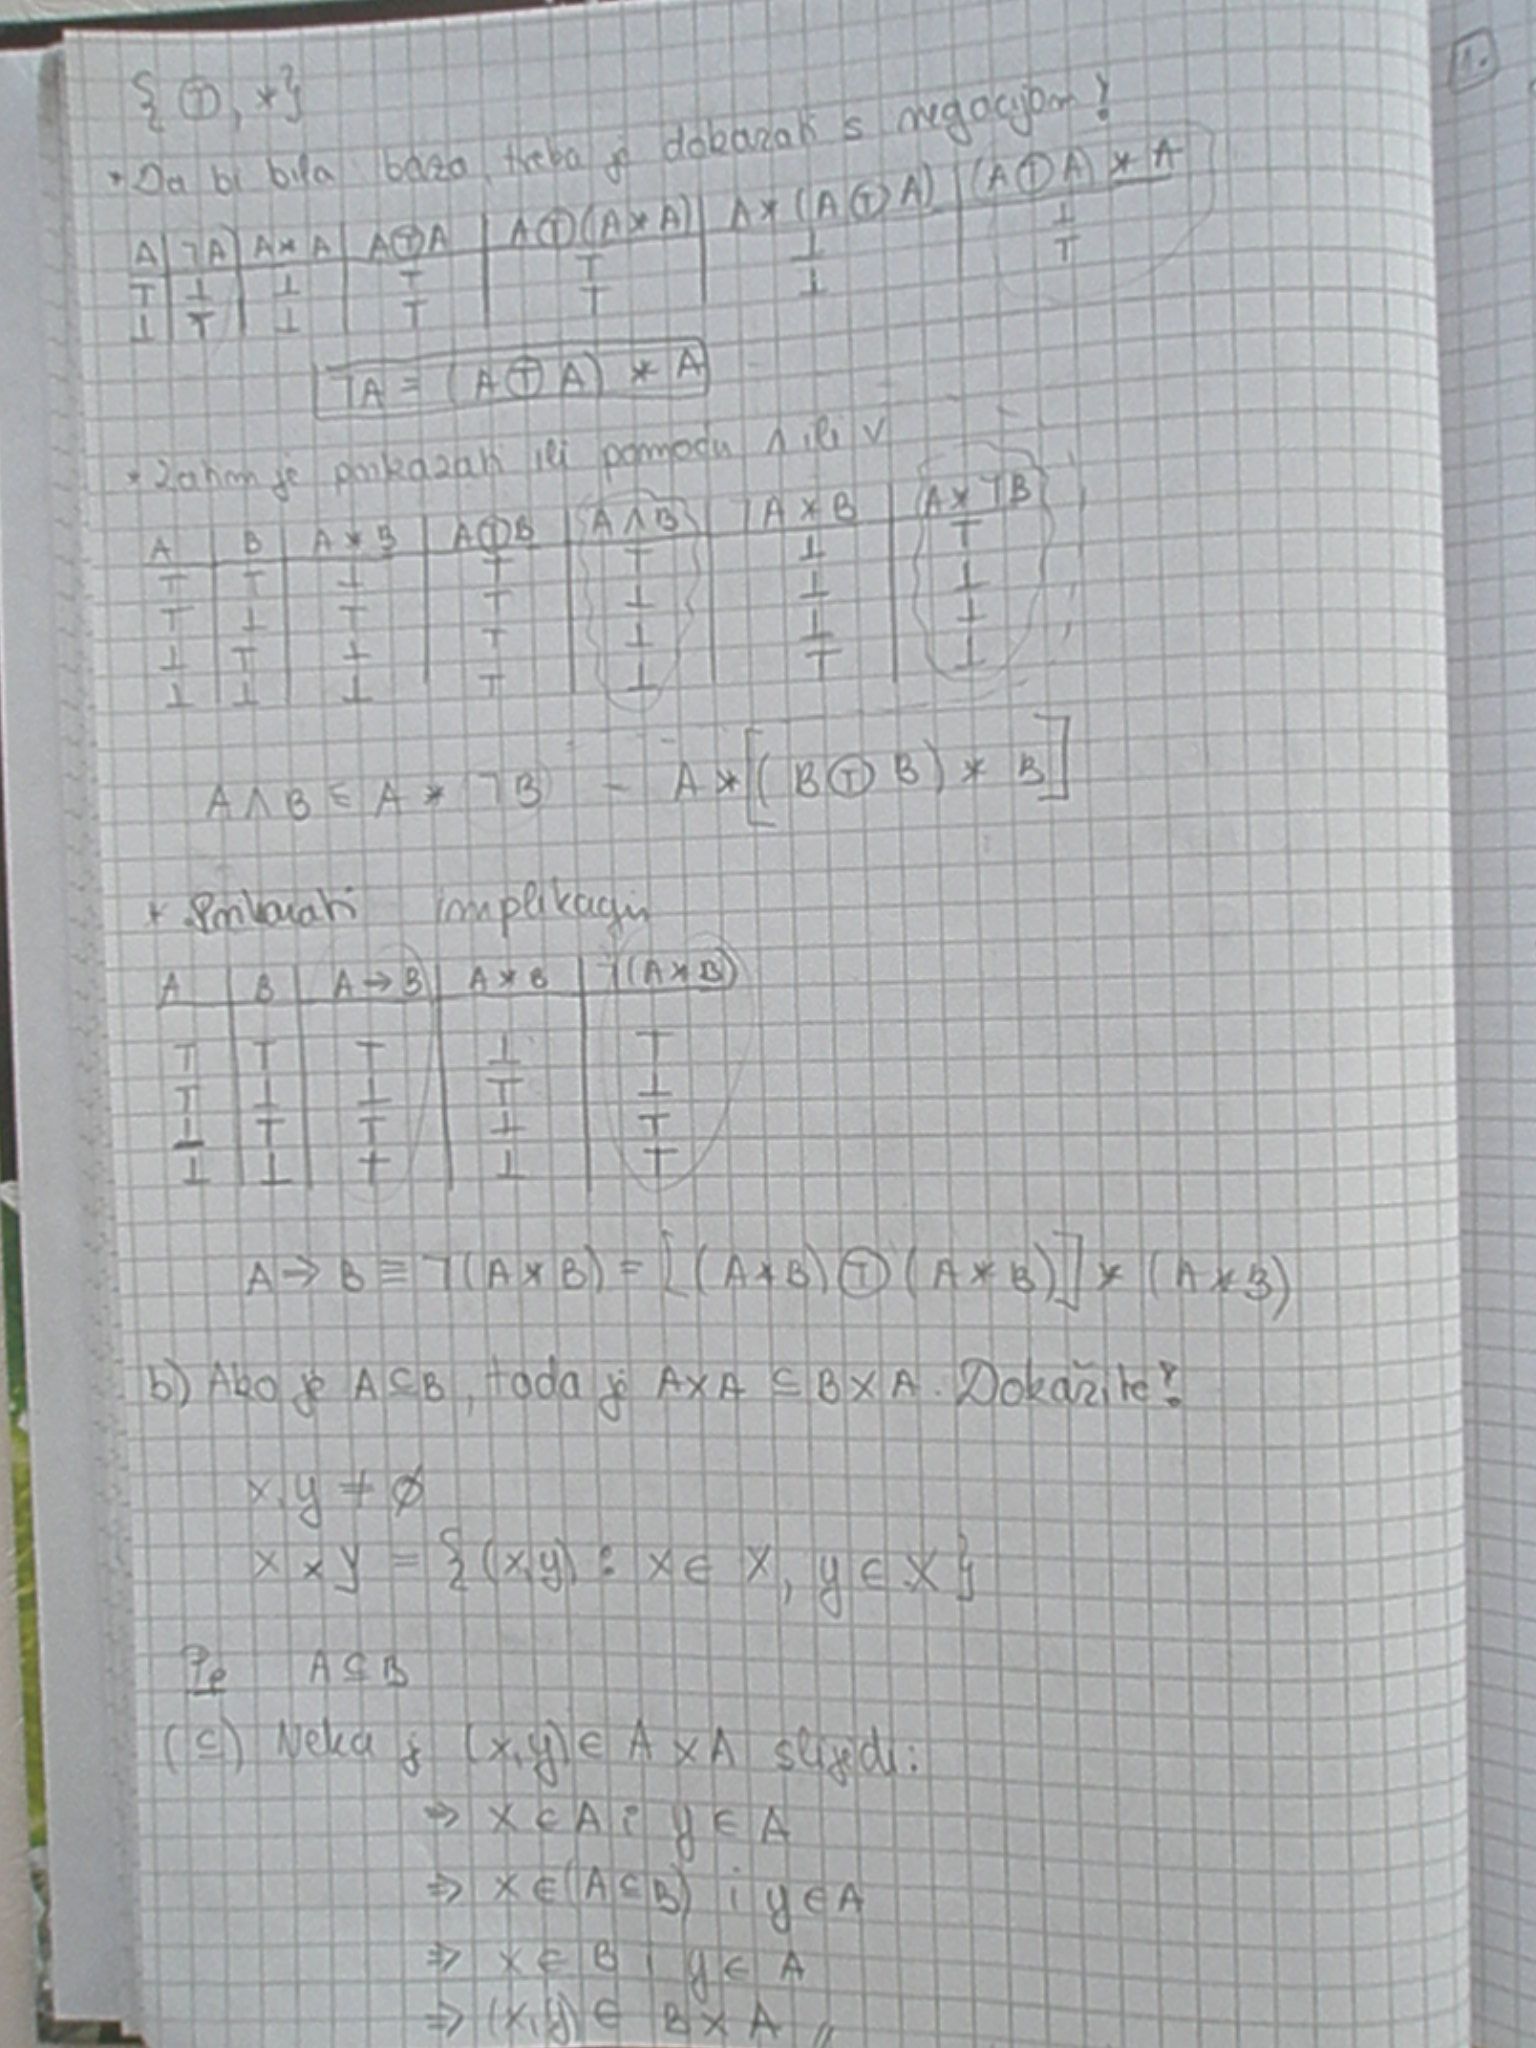 {Ⓣ, *}
* Da bi bila baza, treba je dokazati s negacijom!
A | ¬A | A * A | A Ⓣ A | A Ⓣ (A * A) | A * (A Ⓣ A) | (A Ⓣ A) * A
⊤ | ⊥ | ⊥ | ⊤ | ⊤ | ⊥ | ⊥
⊥ | ⊤ | ⊥ | ⊤ | ⊤ | ⊥ | ⊤
¬A ≡ (A Ⓣ A) * A
* Zatim je prikazati ili pomoću ∧ ili ∨
A | B | A * B | A Ⓣ B | A ∧ B | ¬A * B | A * ¬B
⊤ | ⊤ | ⊥ | ⊤ | ⊤ | ⊥ | ⊤
⊤ | ⊥ | ⊤ | ⊤ | ⊥ | ⊥ | ⊥
⊥ | ⊤ | ⊥ | ⊤ | ⊥ | ⊥ | ⊥
⊥ | ⊥ | ⊥ | ⊤ | ⊥ | ⊤ | ⊥
A ∧ B ≡ A * ¬B = A * [(B Ⓣ B) * B]
* Prikazati implikaciju
A | B | A → B | A * B | ¬(A * B)
⊤ | ⊤ | ⊤ | ⊥ | ⊤
⊤ | ⊥ | ⊥ | ⊤ | ⊥
⊥ | ⊤ | ⊤ | ⊥ | ⊤
⊥ | ⊥ | ⊤ | ⊥ | ⊤
A → B ≡ ¬(A * B) = [(A * B) Ⓣ (A * B)] * (A * B)
b) Ako je A ⊆ B, tada je A × A ⊆ B × A. Dokažite!
x, y ≠ ∅
x × y = {(x,y) : x ∈ X, y ∈ X}
Pp A ⊆ B
(⊆) Neka je (x,y) ∈ A × A slijedi:
⇒ x ∈ A i y ∈ A
⇒ x ∈ (A ⊆ B) i y ∈ A
⇒ x ∈ B i y ∈ A
⇒ (x,y) ∈ B × A //
1.